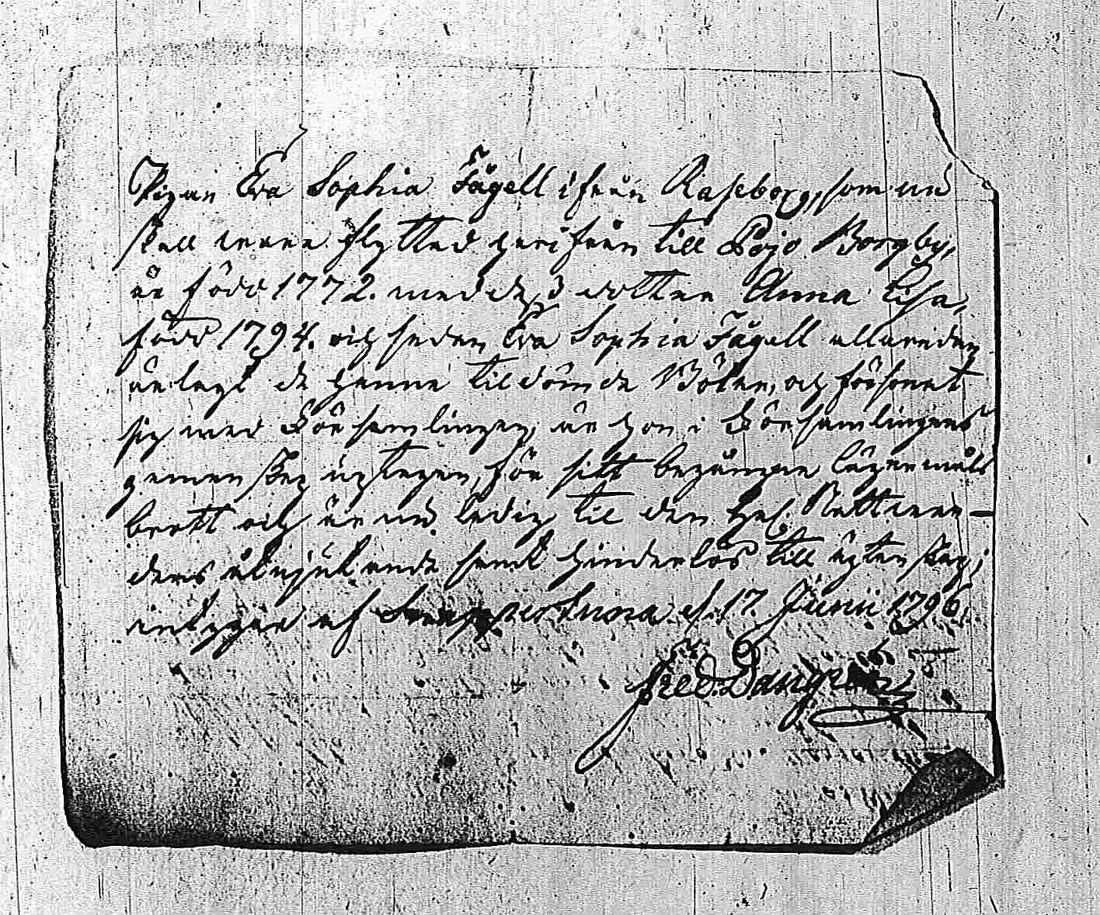 Pigan Eva Sophia Fågell ifrån Raseborg, som nu
skall vara flyttad härifrån till Pojo Borgby,
är född 1772. med dess dotter Anna Lisa,
född 1794. och sedan Eva Sophia Fågell allareden
ärlagt de henne tildömda Böter, och försonat
sig med Församlingen, är hon i Församlingens
gemenskap uptagen, för sitt begångna lägersmåls
brott och är nu ledig til den Hel. Nattvar-
dens åtnjutande samt hinderlös till ägtenskap;
intygar af Snappertuna d. 17. Junii 1796.
Fred.